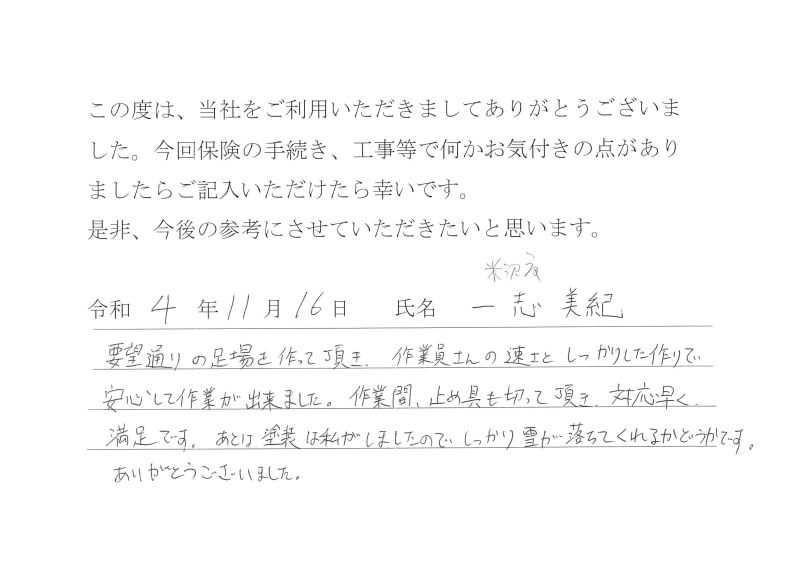 この度は、当社をご利用いただきましてありがとうございま
した。今回保険の手続き、工事等で何かお気付きの点があり
ましたらご記入いただけたら幸いです。
是非、今後の参考にさせていただきたいと思います。
米沢
令和 4 年 11 月 16 日 氏名 一志 美紀
要望通りの足場を作って頂き、作業員さんの速さと しっかりした作りで
安心して作業が出来ました。作業間、止め具も切って頂き、対応早く、
満足です。あとは塗装は私がしましたので しっかり雪が落ちてくれるかどうかです。
ありがとうございました。